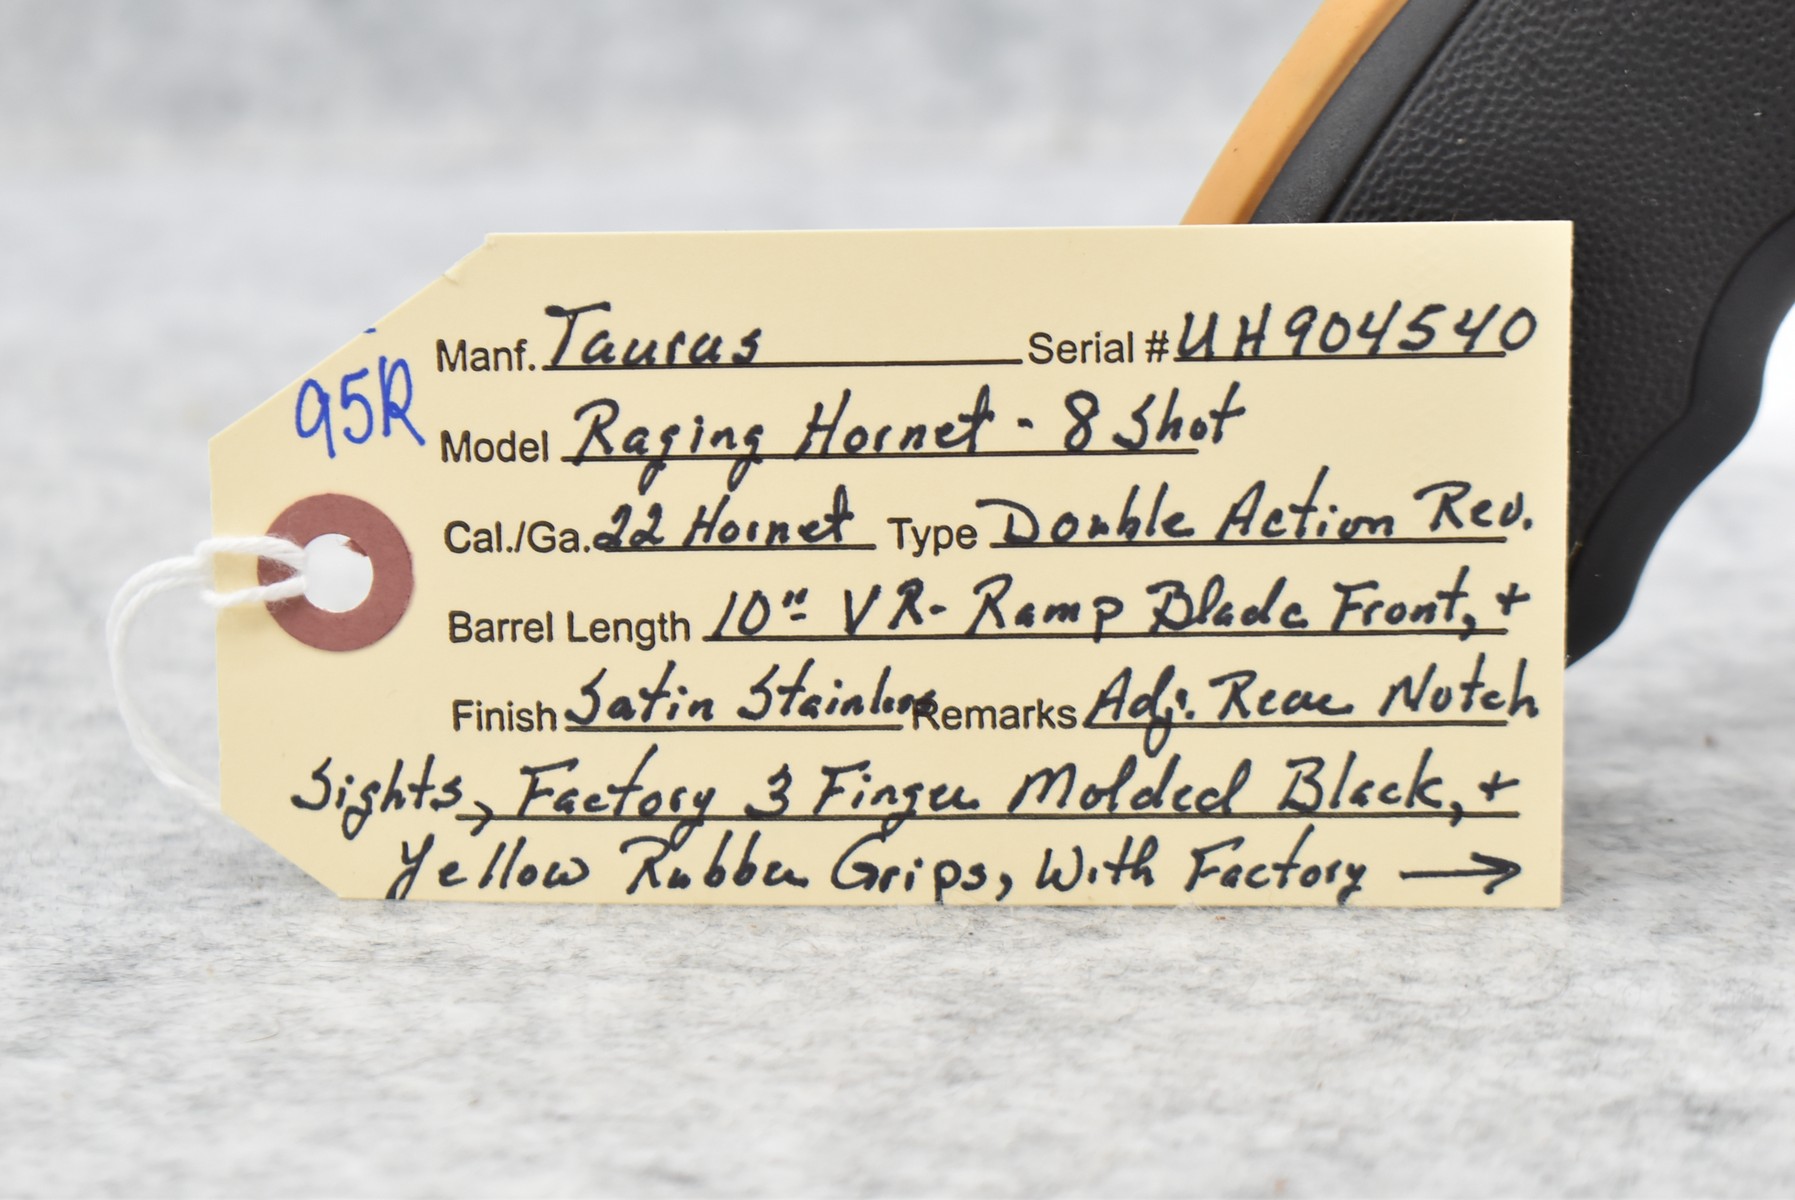 95R
Manf. Taurus Serial # UH904540
Model Raging Hornet - 8 Shot
Cal./Ga. 22 Hornet Type Double Action Rev.
Barrel Length 10" VR- Ramp Blade Front, +
Finish Satin Stainless Remarks Adj. Rear Notch
Sights, Factory 3 Finger Molded Black, +
Yellow Rubber Grips, With Factory →